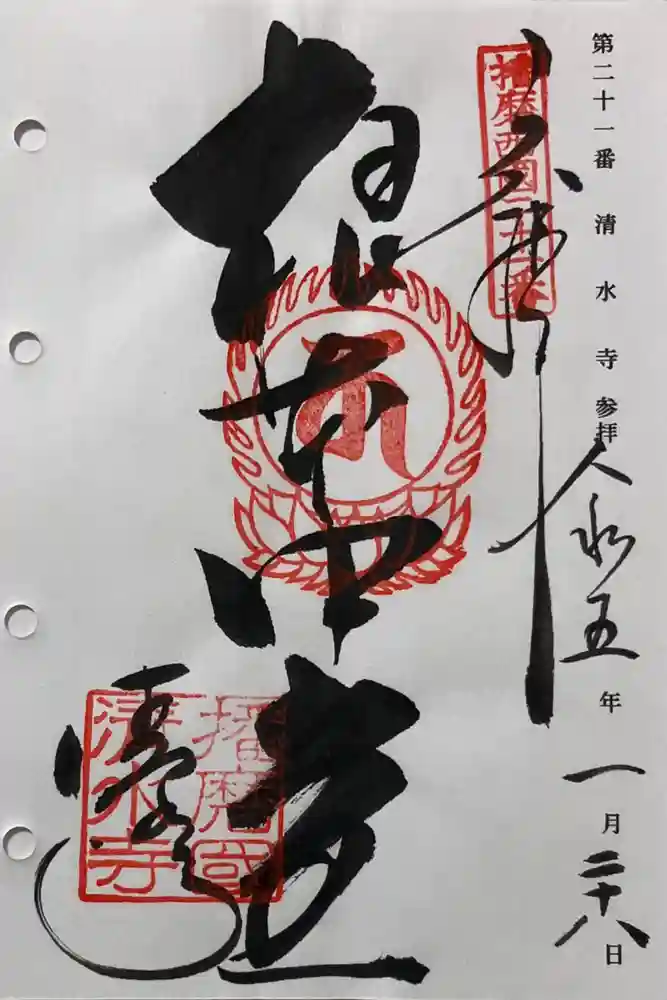 第二十一番 清水寺 参拝 令和五年 一月二十八日
播磨西國二十一番
奉拝
根本中堂
清水寺
播磨國
清水寺